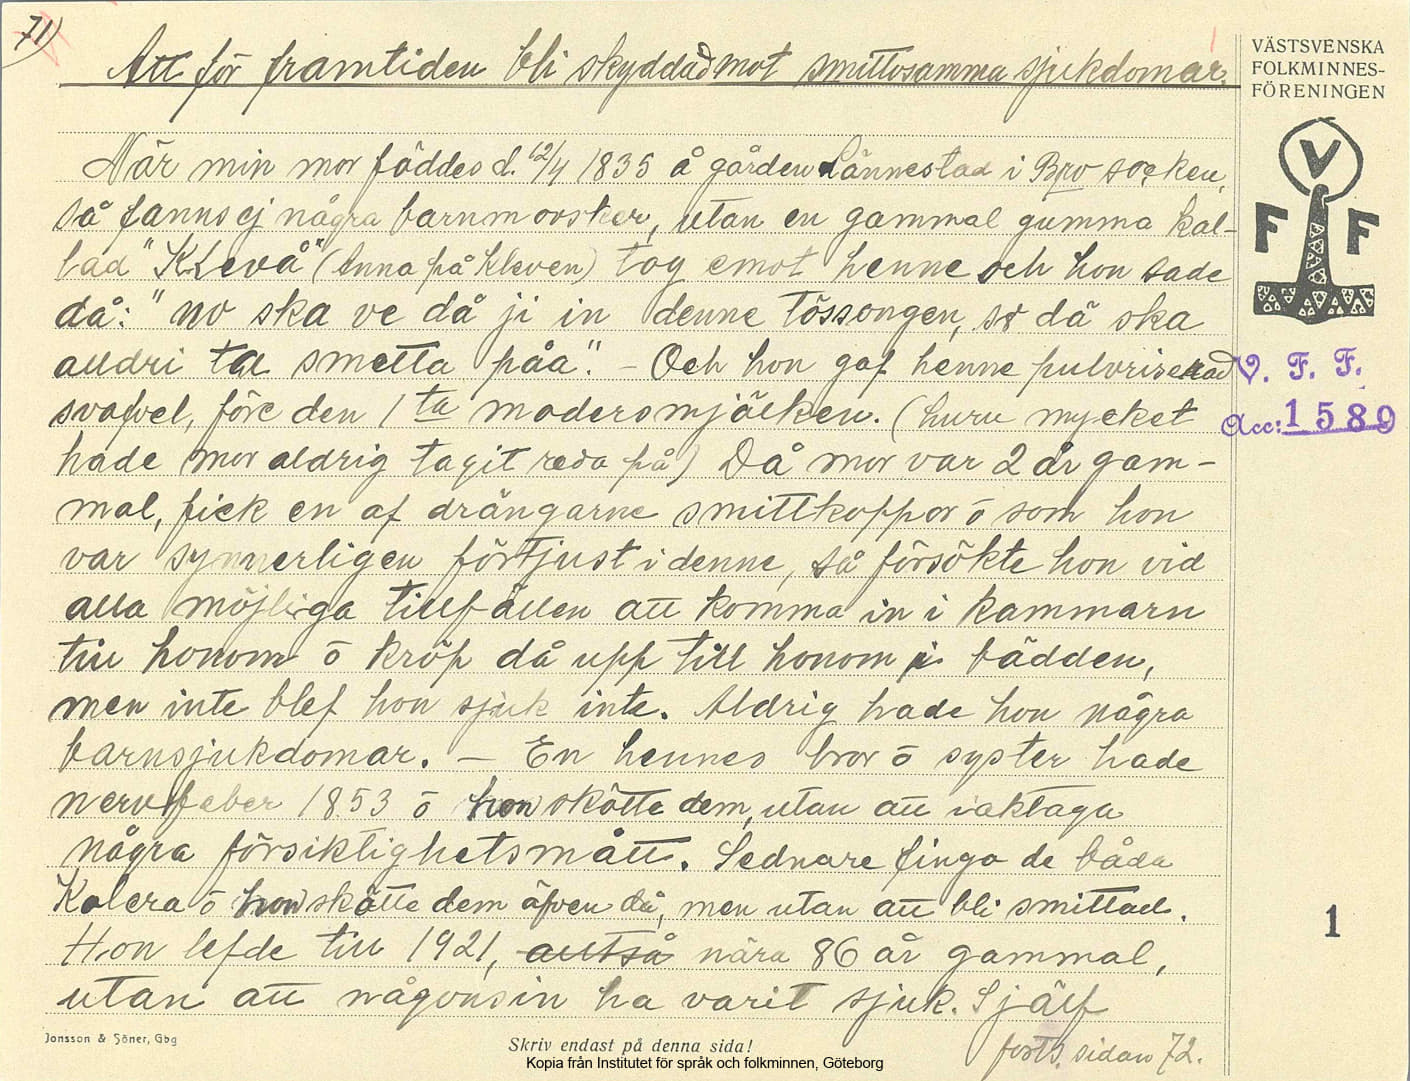 71)
Att för framtiden bli skyddad mot smittosamma sjukdomar.
VÄSTSVENSKA
FOLKMINNES-
FÖRENINGEN
V
F F
När min mor föddes d. 12/4 1835 å gården Lännestad i Bro socken,
så fanns ej några barnmorsker, utan en gammal gumma kal-
lad "Klevå" (Anna på Kleven) tog emot henne och hon sade
då: "no ska ve då ji in denne tössongen, så dä ska
alldri ta smetta påa". - Och hon gaf henne pulvriserad
V. F. F.
svafvel, före den 1ta modersmjölken. (huru mycket
Acc: 1589
hade mor aldrig tagit reda på) Då mor var 2 år gam-
mal, fick en af drängarne smittkoppor ō som hon
var synnerligen förtjust i denne, så försökte hon vid
alla möjliga tillfällen att komma in i kammarn
till honom ō kröp då upp till honom i bädden,
men inte blef hon sjuk inte. Aldrig hade hon några
barnsjukdomar. - En hennes bror ō syster hade
nervfeber 1853 ō hon skötte dem, utan att iakttaga
några försiktighetsmått. Sednare fingo de båda
Kolera ō hon skötte dem äfven då, men utan att bli smittad.
1
Hon lefde till 1921, alltså nära 86 år gammal,
utan att någonsin ha varit sjuk. Sjelf
forts. sidan 72.
Jonsson & Söner, Gbg
Skriv endast på denna sida!
Kopia från Institutet för språk och folkminnen, Göteborg